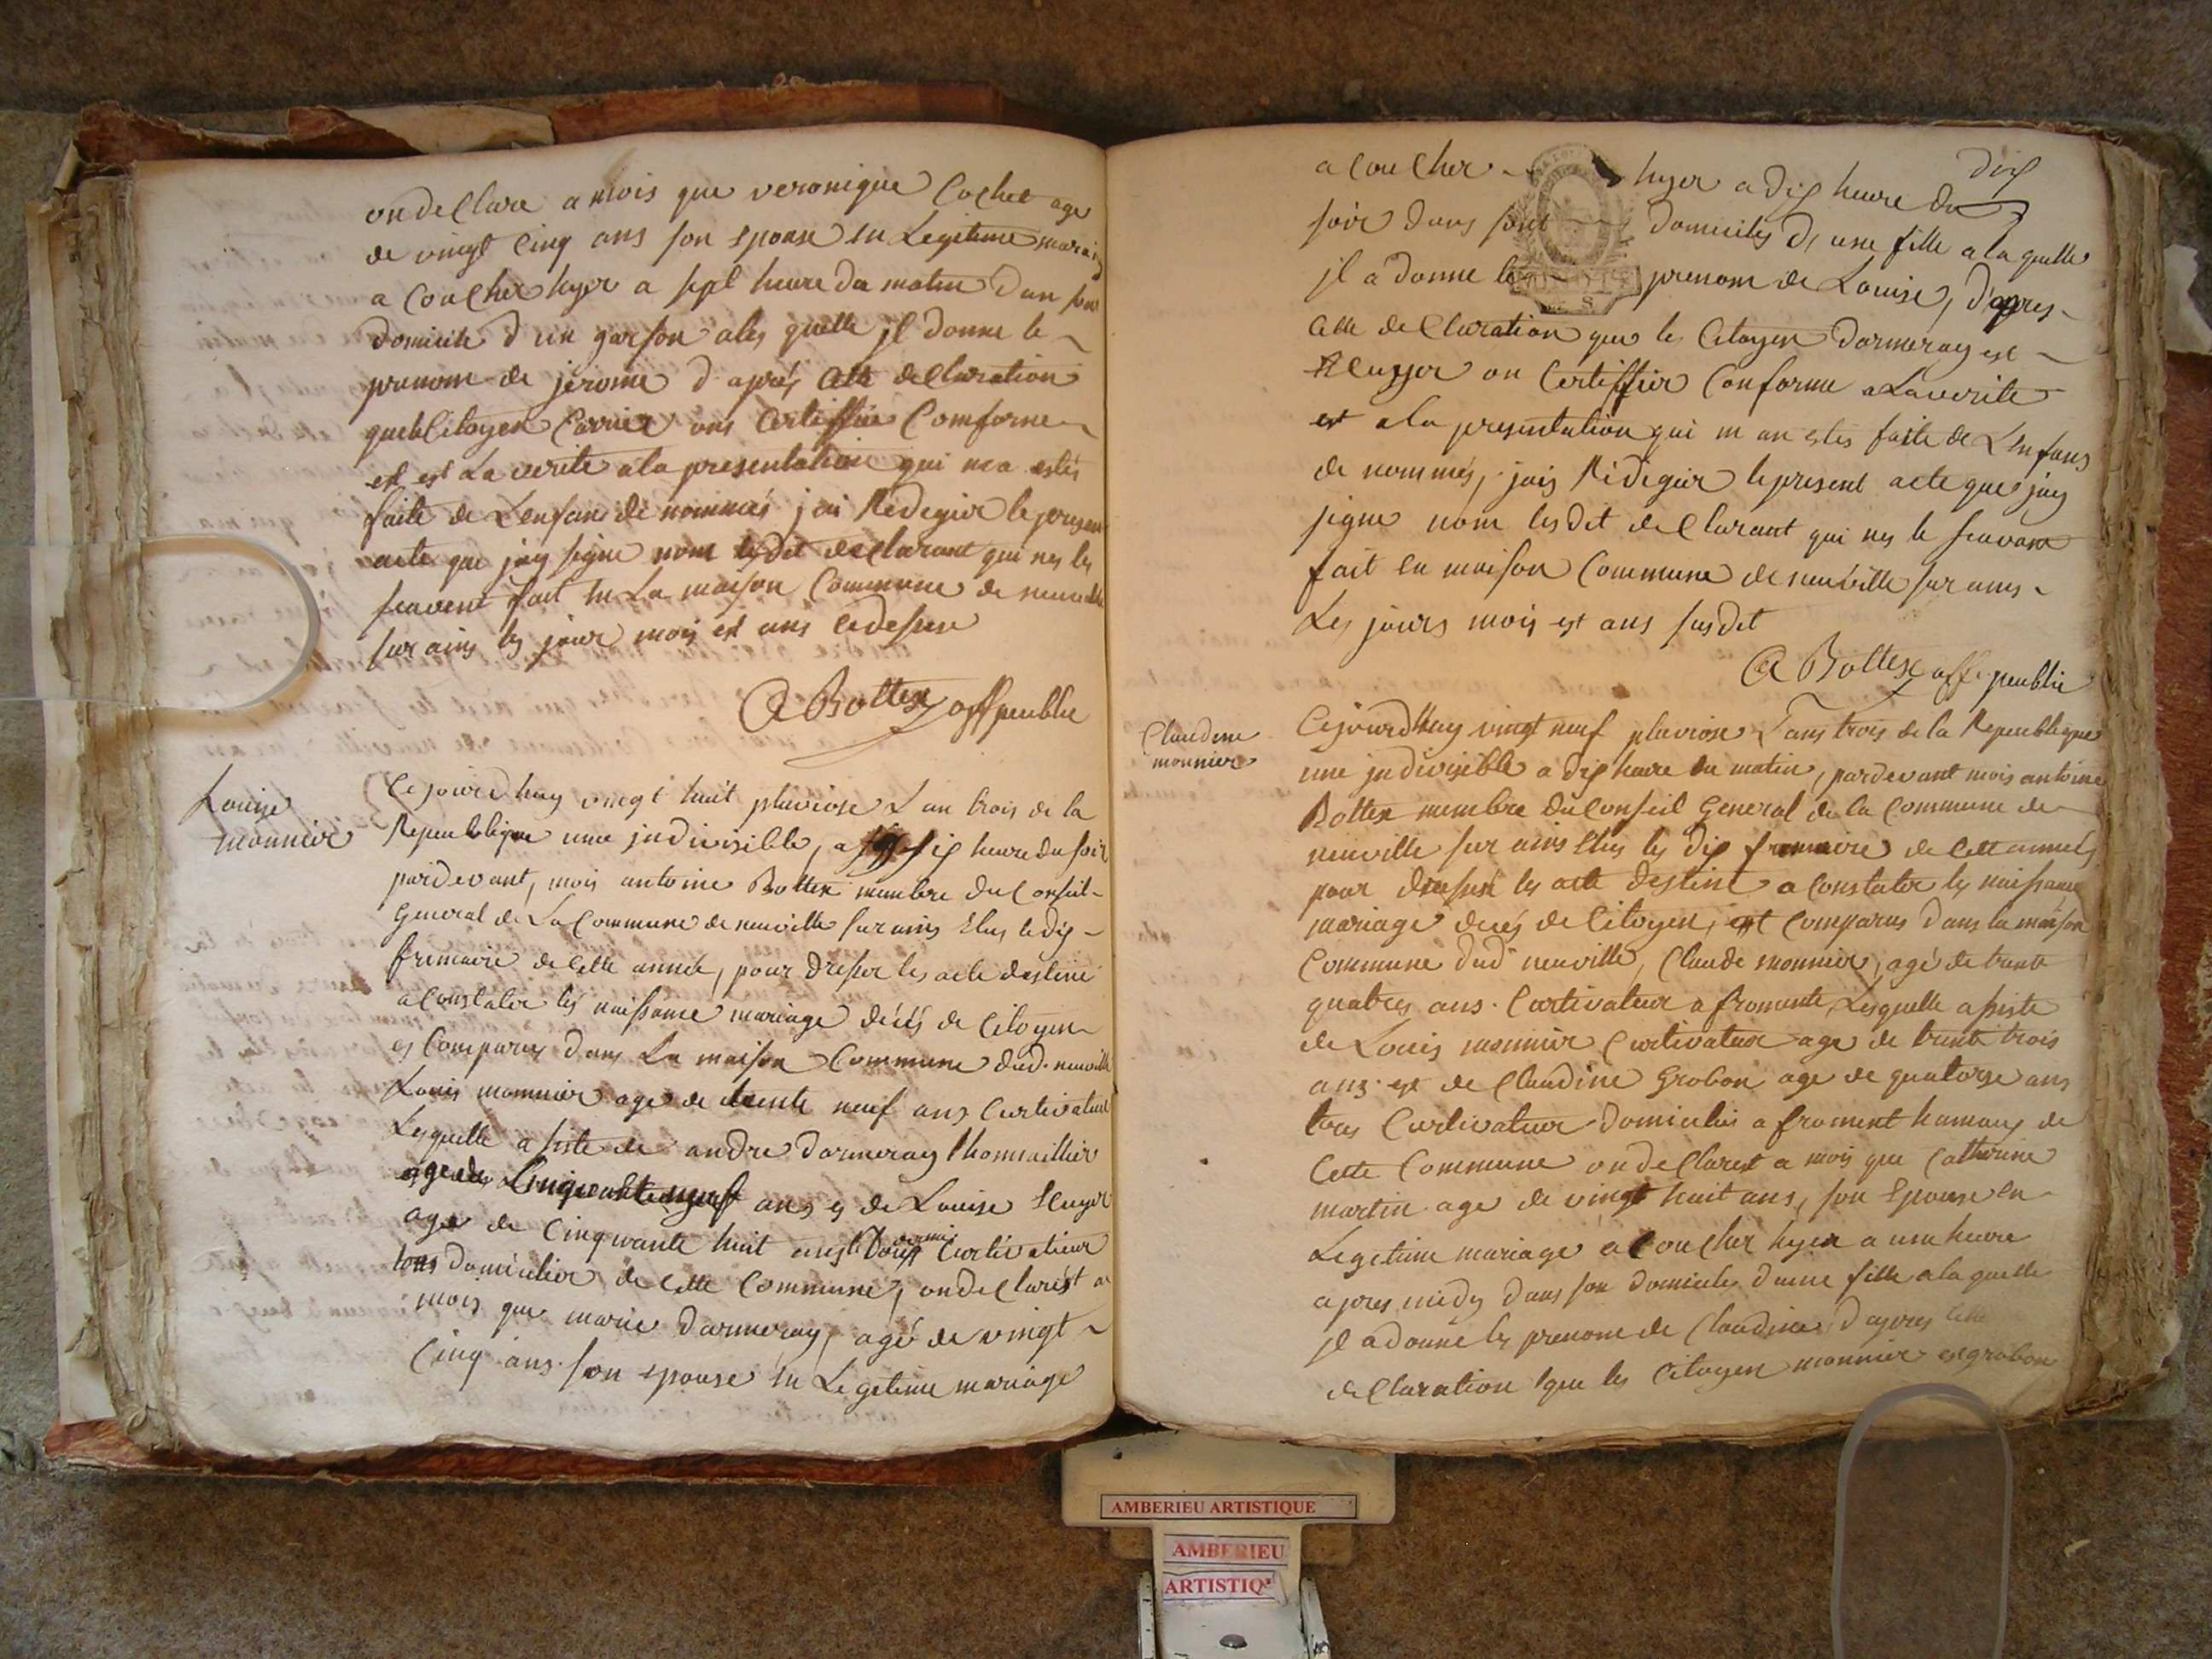 ondeClare a mois que veronique Cochet age
de vingt Cinq ans son Epouse en Legitime mariag
a CouCher hyer a sept heure du matin dan son
domicile d'un garson ales quelle jl donne le
prenom de jerome d'après Cette deClaration
que le Citoyen Carrier ons Certiffier Comforme
et est La verite ala presentation qui ma estés
faite de Lenfans de nommés jai Redegier le present
acte que jay signe nom lesdit deClarant qui nes les
scavent fait en La maison Commune de neuville
sur ains les jour mois est ans Cidesur
A Bottex off peublic
Louise
monnier
Cejourdhuy vingt huit pluviose L an trois de la
Repeublique une jndivisible, a six heure du soir
pardevant, mois antoine Bottex membre du Conseil
General de La Commune de neuville sur ains Elus le dix
frimaire de Cette année, pour dresser les acte destiné
a Constater les naissance mariage décés de Citoyen
es Comparus dans La maison Commune dud. neuville
Louis monnier age de trente neuf ans Curtivateur
Lesquelle assiste de andre darmeray
age de Cinquante neuf ans es de Louise
age de Cinquante huit ans tous Curtivateur
tous domicilier de Cette Commune, ondeClarest a
mois que marie darmeray, agé de vingt
Cinq ans son epouse en Legetime mariage
dix
a CouCher hyer a dix heure du
soir dans sont domiciles d, une fille a la quelle
jl a donne les prenom de Louise, d'apres
Cette deClaration que les Citoyen darmeray est
on Certiffier Conforme a La verite
est ala presentation qui m an estes faite de L'enfans
de nommés, jais Redigeir le present acte que jay
signe nom lesdit deClarant qui nes le scavans
fait en maison Commune de neuville sur ains
Les jours mois est ans susdit
A Bottex off. peublic
Claudine
monnier
Cejourdhuy vingt neuf pluviose L'ans trois de la Repeublique
une jndivisible a dix heure du matin, pardevant mois antoine
Bottex membre du Conseil General de la Commune de
neuville sur ains Elus les dix frimaire de Cette annes
pour dresser les acte destine a Constater les naissance
mariage decés de Citoyen, est Comparus dans la maison
Commune dud neuville, Claude monnier, agé de trante
quatres ans. Curtivateur a fromente, Lesquelle assiste
de Louis monnier Curtivateur age de trente trois
ans est de Claudine Grobon age de quatorze ans
tous Curtivateur domicilies a froment hamaux de
Cette Commune ondeClarest a mois que Catherine
martin age de vingt huit ans, son Epouse en
Legetime mariage a CouCher hyer a une heure
apres midy dans son domiciles d'une fille a la quelle
jl a donné les prenom de Claudine, d'apres Cette
deClaration que les Citoyen monnier est grobon
AMBERIEU ARTISTIQUE
AMBERIEU
ARTISTIQ